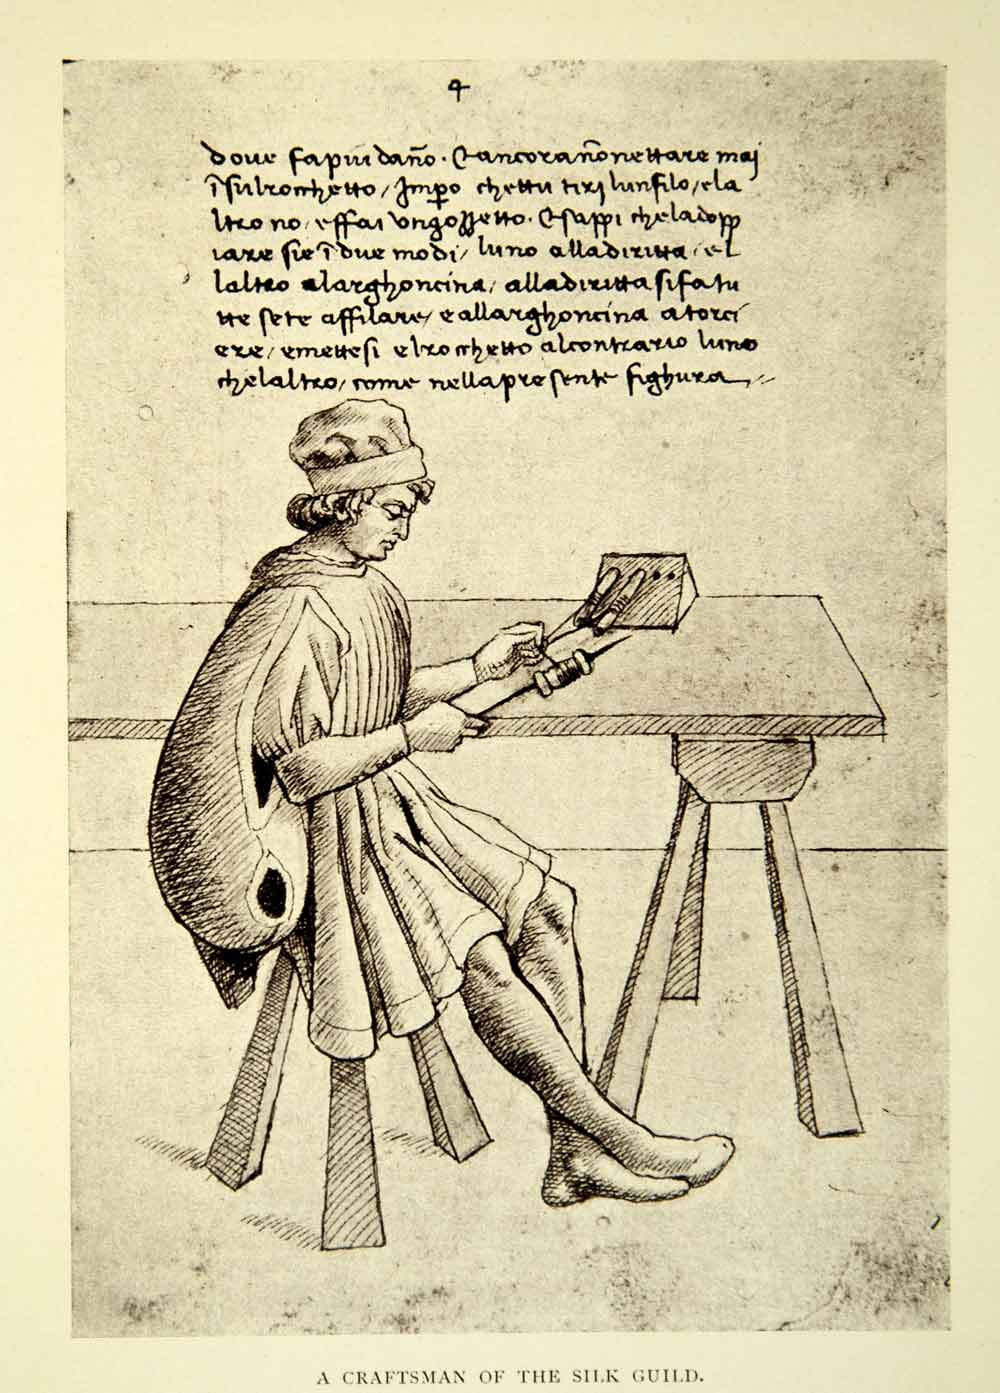 4
doue fa piu dan̄o · Et ancora nō nettare mai
ī sul rocchetto / Imp̱o chettu tiri lun filo / ela
ltro no / effai ungozzetto · Et sappi che la dopp
iare sie ī due modi / luno alla diritta / el
laltro alarghoncina / alla diritta si fa tu
tte sete affilare / e allarghoncina a torci
ere / e mettesi el rocchetto al contrario luno
chelaltro / come nella presente fighura
A CRAFTSMAN OF THE SILK GUILD.